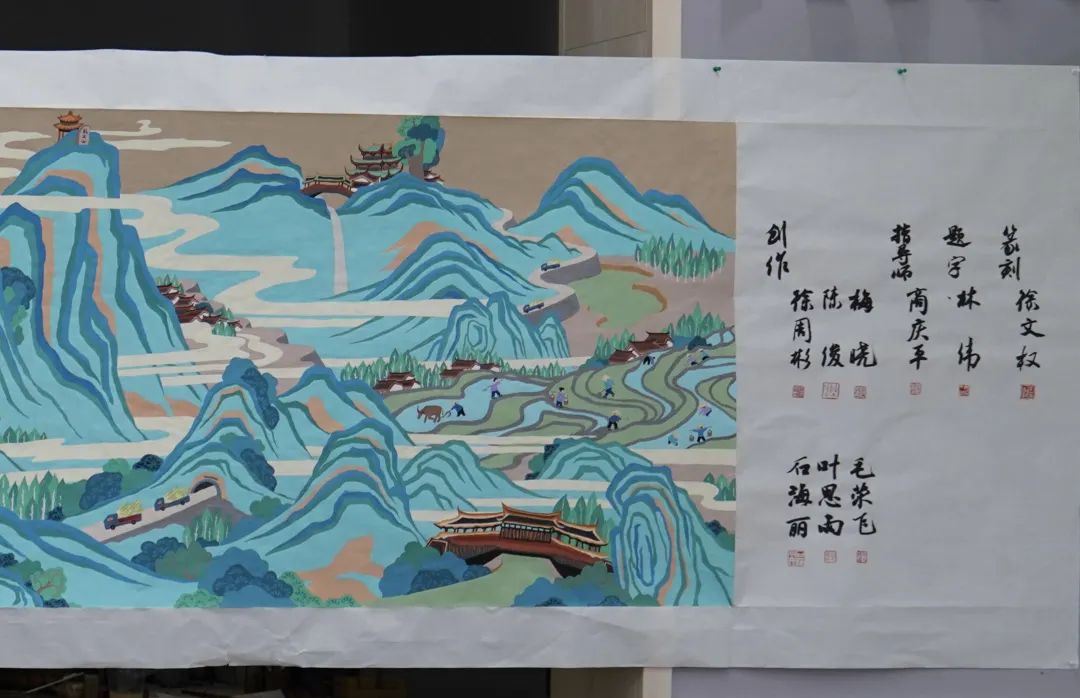 篆刻
徐文权
题字
林伟
指导师
商庆平
创作
梅晓
陈俊
徐周彬
毛荣飞
叶思雨
石海丽